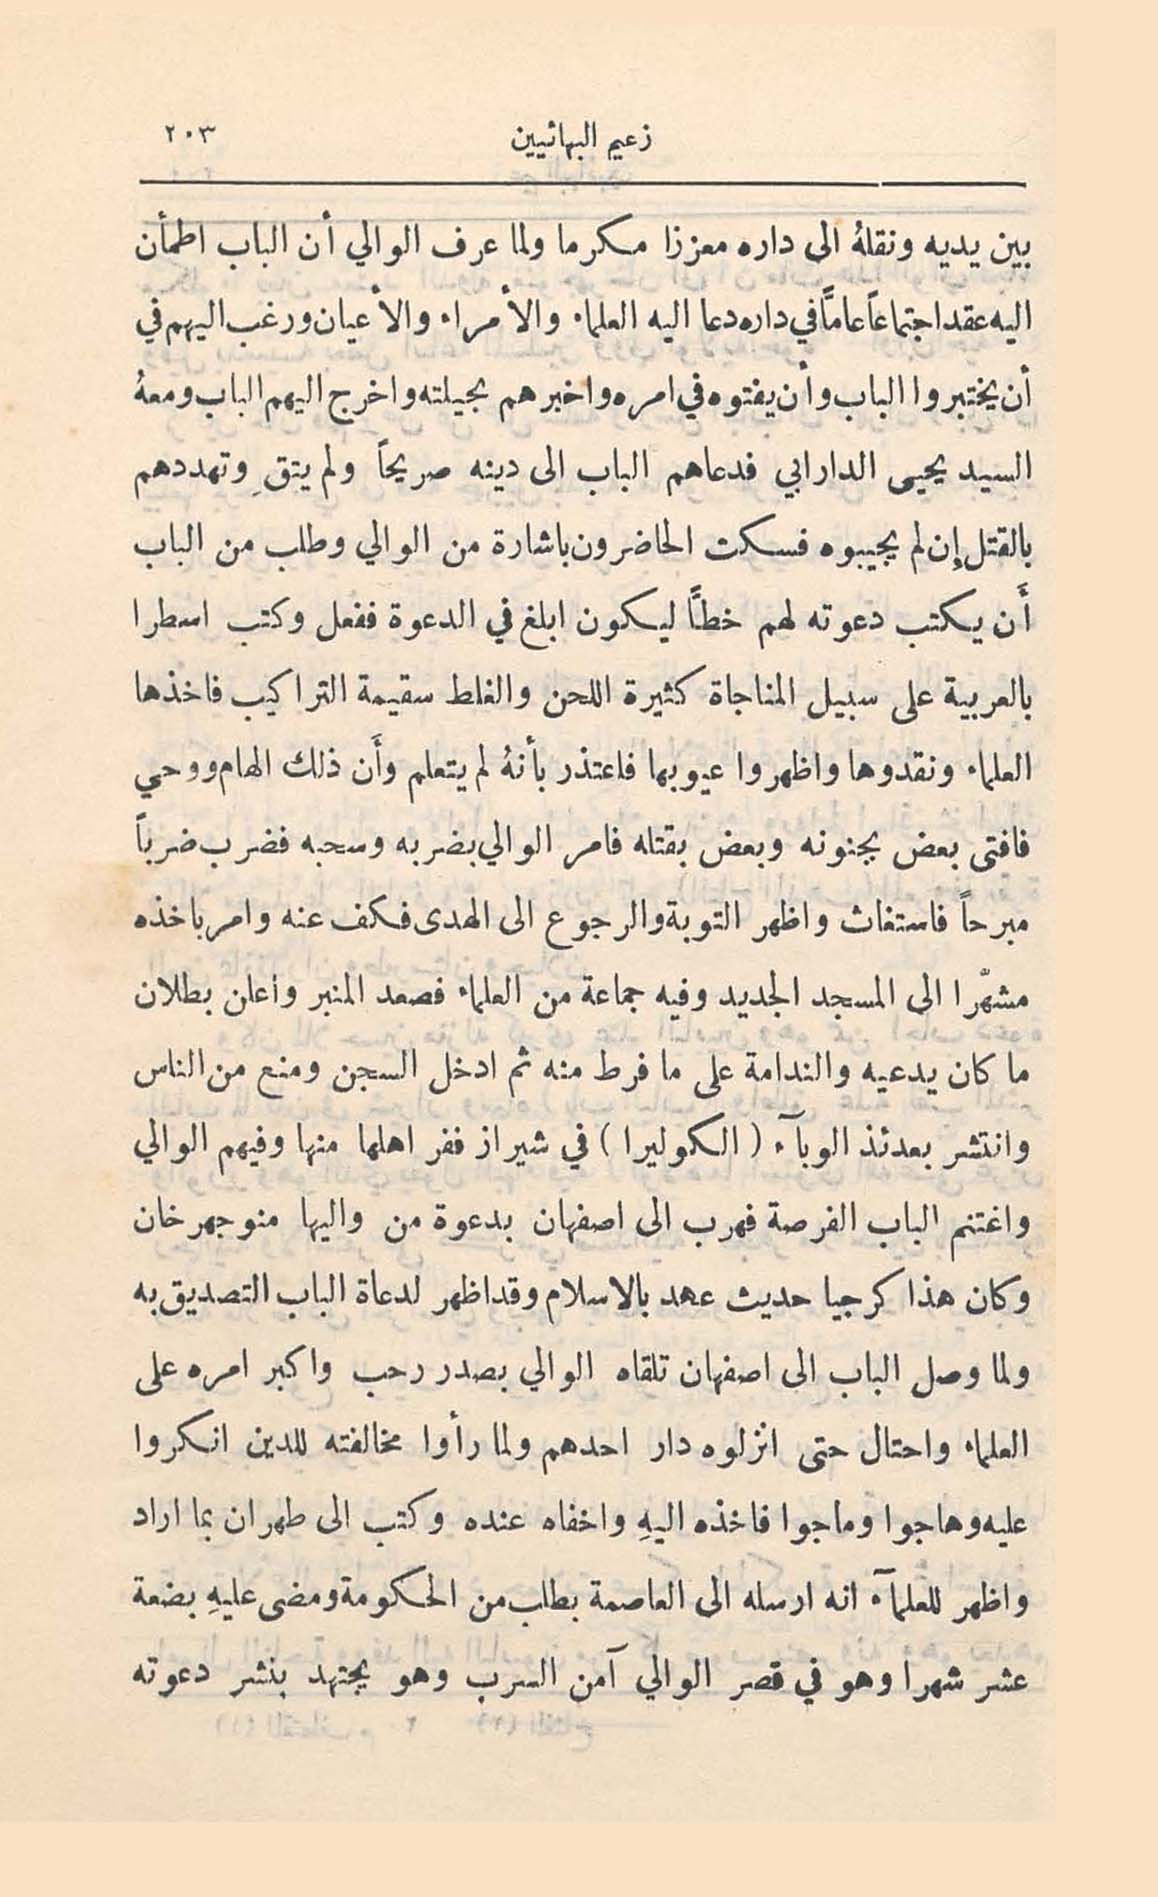 زعيم البهائيين ٢٠٣
بين يديه ونقلهُ الى داره معززا مكرما ولما عرف الوالي أن الباب اطمأن
اليه عقد اجتماعاً عاماً في داره دعا اليه العلماء والأمراء والأعيان ورغب اليهم في
أن يختبروا الباب وأن يفتوه في امره واخبرهم بحيلته واخرج اليهم الباب ومعهُ
السيد يحيى الدارابي فدعاهم الباب الى دينه صريحاً ولم يتقِ وتهددهم
بالقتل إن لم يجيبوه فسكت الحاضرون باشارة من الوالي وطلب من الباب
أَن يكتب دعوته لهم خطاً ليكون ابلغ في الدعوة ففعل وكتب اسطرا
بالعربية على سبيل المناجاة كثيرة اللحن والغلط سقيمة التراكيب فاخذها
العلماء ونقدوها واظهروا عيوبها فاعتذر بأنهُ لم يتعلم وأَن ذلك الهام ووحي
فافتى بعض بجنونه وبعض بقتله فامر الوالي بضربه وسحبه فضرب ضرباً
مبرحاً فاستغاث واظهر التوبة والرجوع الى الهدى فكف عنه وامر باخذه
مشهّرا الى المسجد الجديد وفيه جماعة من العلماء فصعد المنبر وأعلن بطلان
ما كان يدعيه والندامة على ما فرط منه ثم ادخل السجن ومنع من الناس
وانتشر بعدئذ الوبآء ( الكوليرا ) في شيراز ففر اهلها منها وفيهم الوالي
واغتنم الباب الفرصة فهرب الى اصفهان بدعوة من واليها منوجهر خان
وكان هذا كرجيا حديث عهد بالاسلام وقد اظهر لدعاة الباب التصديق به
ولما وصل الباب الى اصفهان تلقاه الوالي بصدر رحب واكبر امره على
العلماء واحتال حتى انزلوه دار احدهم ولما رأوا مخالفته للدين انكروا
عليه وهاجوا وماجوا فاخذه اليهِ واخفاه عنده وكتب الى طهران بما اراد
واظهر للعلمآء انه ارسله الى العاصمة بطلب من الحكومة ومضى عليهِ بضعة
عشر شهرا وهو في قصر الوالي آمن السرب وهو يجتهد بنشر دعوته